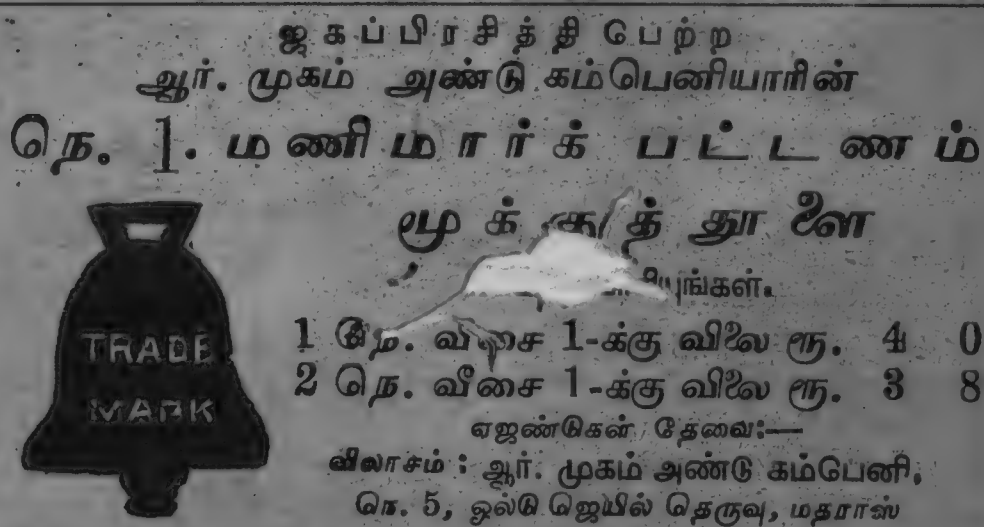 ஜகப்பிரசித்தி பெற்ற
ஆர். முகம் அண்டு கம்பெனியாரின்
நெ. 1. மணிமார்க் பட்டணம்
மூக்குத் தூளை
TRADE
MARK
1 நெ. வீசை 1-க்கு விலை ரூ. 4 0
2 நெ. வீசை 1-க்கு விலை ரூ. 3 8
ஏஜண்டுகள் தேவை:—
விலாசம் : ஆர். முகம் அண்டு கம்பெனி,
நெ. 5, ஓல்டு ஜெயில் தெருவு, மதராஸ்